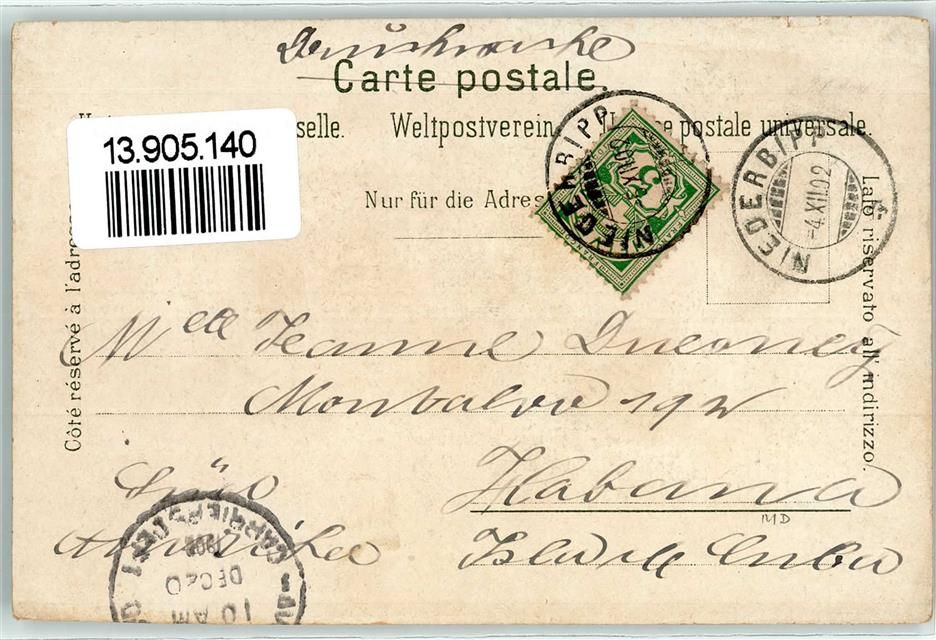 Drucksache
Carte postale.
13.905.140
selle. Weltpostverein postale universale.
Nur für die Adres
Côté réservé à l'adres
Lato riservato all' indirizzo.
NIEDERBIPP
NIEDERBIPP
-4.XII.02
5
FRANCO
Mlle Jeanne
192
Habana
MD
Isla de Cuba
Süd
Amerika
CARRIERS DEPT
DEC 20
10 AM